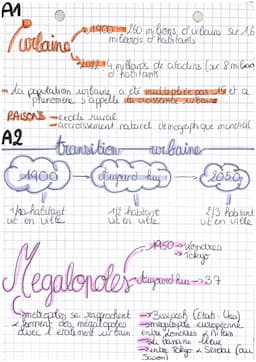 A1
urbaine
1900 → 260 millions d'urbains sur 1,6
milliards d'habitants
4 milliards de citadins (sur 8 milliards
d'habitants
- La population urbaine a été multipliée par 15 et ce
phénomène s'appelle la croissance urbaine
RAISONS → exode rural
→ accroissement naturel démographique mondial
A2
transition urbaine
1900 → aujourd'hui → 2050
1/10 habitant
vit en ville
1/2 habitant
vit en ville
2/3 habitant
vit en ville
Mégalopoles
1950 → Londres
→ Tokyo
Aujourd'hui → 37
métropoles se rapprochent
forment des mégalopoles
avec l'étalement urbain
(Etats-Unis)
→ mégalopole européenne
entre Londres et Milan
la banane bleue
→ entre Tokyo et Sendai (au
Japon)